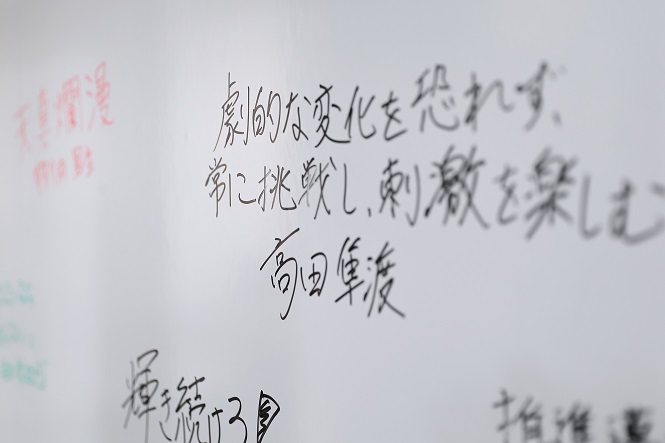 天真爛漫
劇的な変化を恐れず、
常に挑戦し、刺激を楽しむ
高田隼渡
輝き続けろ
推進